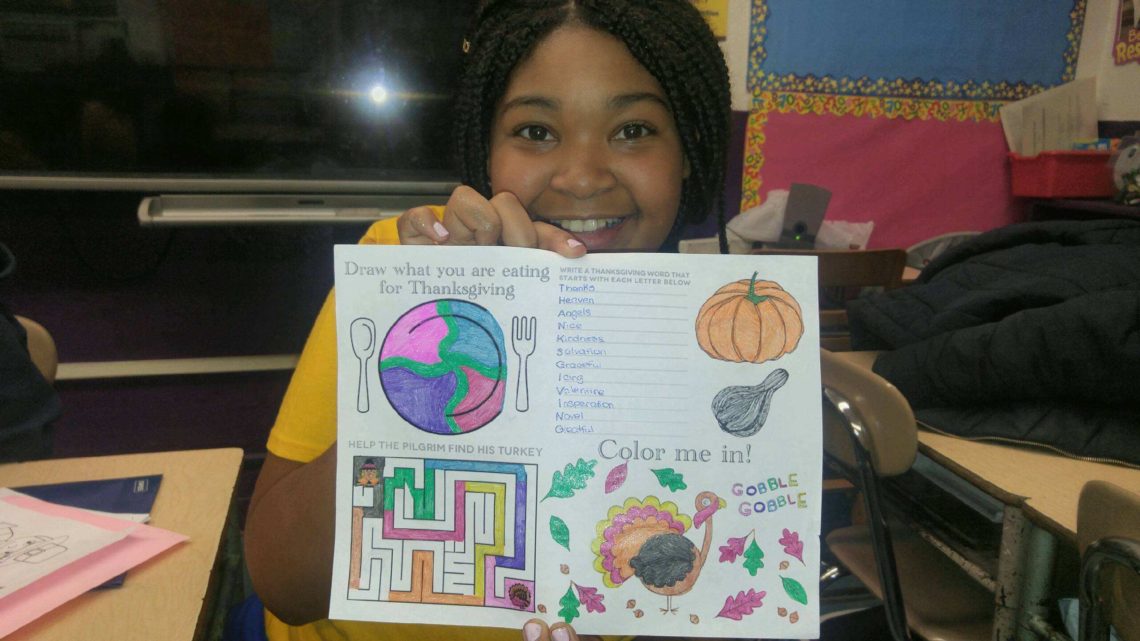 Draw what you are eating
for Thanksgiving
WRITE A THANKSGIVING WORD THAT
STARTS WITH EACH LETTER BELOW
Thanks
Heaven
Angels
Nice
Kindness
Salvation
Graceful
Icing
Valentine
Insperation
Novel
HELP THE PILGRIM FIND HIS TURKEY
Color me in!
GOBBLE
GOBBLE